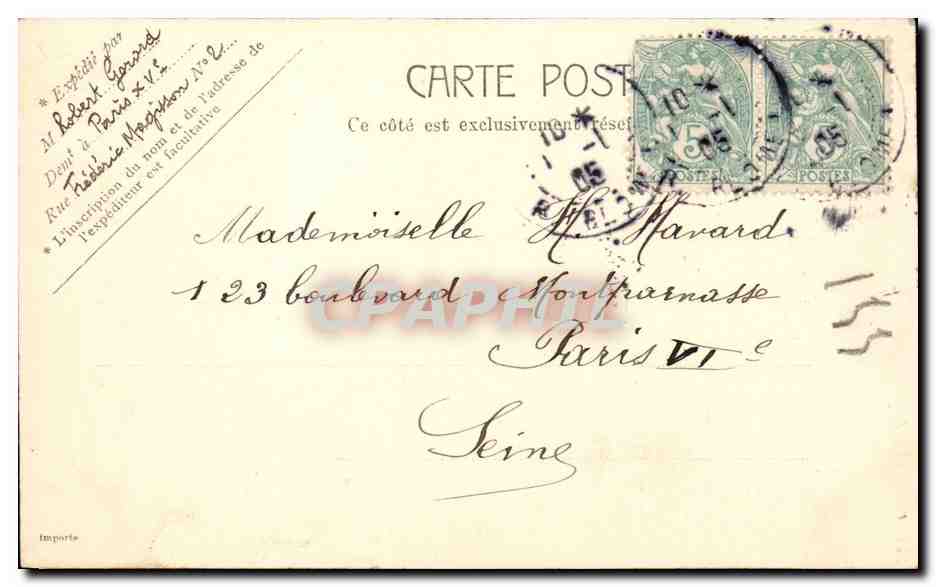 * Expédié par
M Robert Gerard
Demt à Paris XVe
Rue Frédéric Magisson No 2
* L'inscription du nom et de l'adresse de
l'expéditeur est facultative
CARTE POST
Ce côté est exclusivement réser
5
POSTES
5
POSTES
10 * 1
05
10 * 1
05
* 1
05
Mademoiselle H. Havard
123 boulevard Montparnasse
Paris VIe
Seine
CPAPHIL
Importe